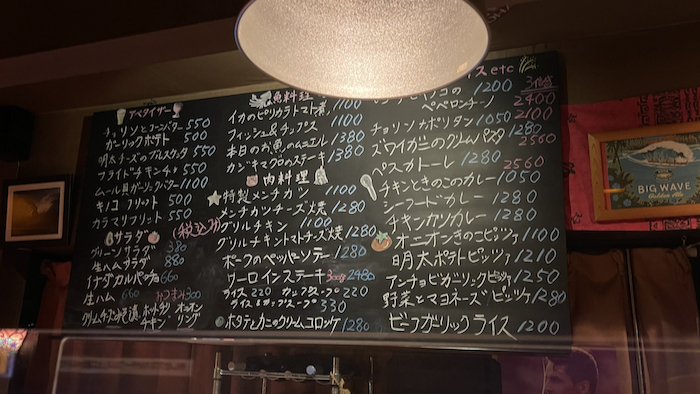 アペタイザー
チョリソとコーンバター 550
ガーリックポテト 500
明太チーズのブルスケッタ 550
フライドチキン 550
ムール貝ガーリックバター 1100
キノコフリット 500
カラマリフリット 550
サラダ (税込み)
グリーンサラダ 380
生ハムサラダ 880
カルパッチョ 660
生ハム 660
300
ポテト オニオン
チキン リング
魚料理
イカのピリカラトマト煮 1100
フィッシュ&チップス 1100
本日のお魚のムニエル 1380
カジキマグロのステーキ 1380
肉料理
特製メンチカツ 1100
メンチカツチーズ焼 1280
グリルチキン 1100
グリルチキントマトチーズ焼 1280
ポークのペッパーソテー 1280
サーロインステーキ 300g 2480
ライス 220 カップスープ 220
ライス&カップスープ 330
ホタテとカニのクリームコロッケ 1280
イス etc
1200
ペペロンチーノ 2400
チョリソナポリタン 1050 2100
ズワイガニのクリームパスタ 1280 2560
ペスカトーレ 1280 2560
チキンときのこのカレー 1050
シーフードカレー 1280
チキンカツカレー 1280
オニオンきのこピッツァ 1100
明太ポテトピッツァ 1210
アンチョビガーリックピッツァ 1250
野菜とマヨネーズピッツァ 1280
ビーフガーリックライス 1200
BIG WAVE